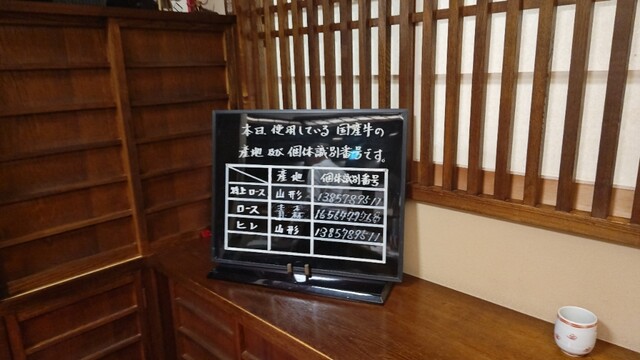 本日使用している国産牛の
産地及び個体識別番号です。
産地 個体識別番号
頂上ロース 山形 1385789511
ロース 青森
ヒレ 山形 1385789511